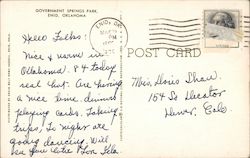 GOVERNMENT SPRINGS PARK,
ENID, OKLAHOMA
Hello Folks:
Nice & warm in
Oklahoma. & today
real hot. Are having
a nice time, dinners
playing cards. Taking
trips, To night are
going dancing. Will
see you
POST CARD
ENID, OK
PM
Miss Doris Shaw
1545 So Decator
Denver, Colo